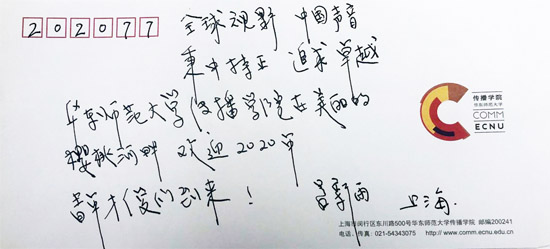 202077
全球视野 中国声音
秉中持正 追求卓越
传播学院
华东师范大学
COMM
ECNU
华东师范大学传播学院在美丽的
樱桃河畔 欢迎2020年
才俊们到来！
吕新雨 上海.
上海市闵行区东川路500号华东师范大学传播学院 邮编200241
电话·传真 021-54343075 http:// www.comm.ecnu.edu.cn